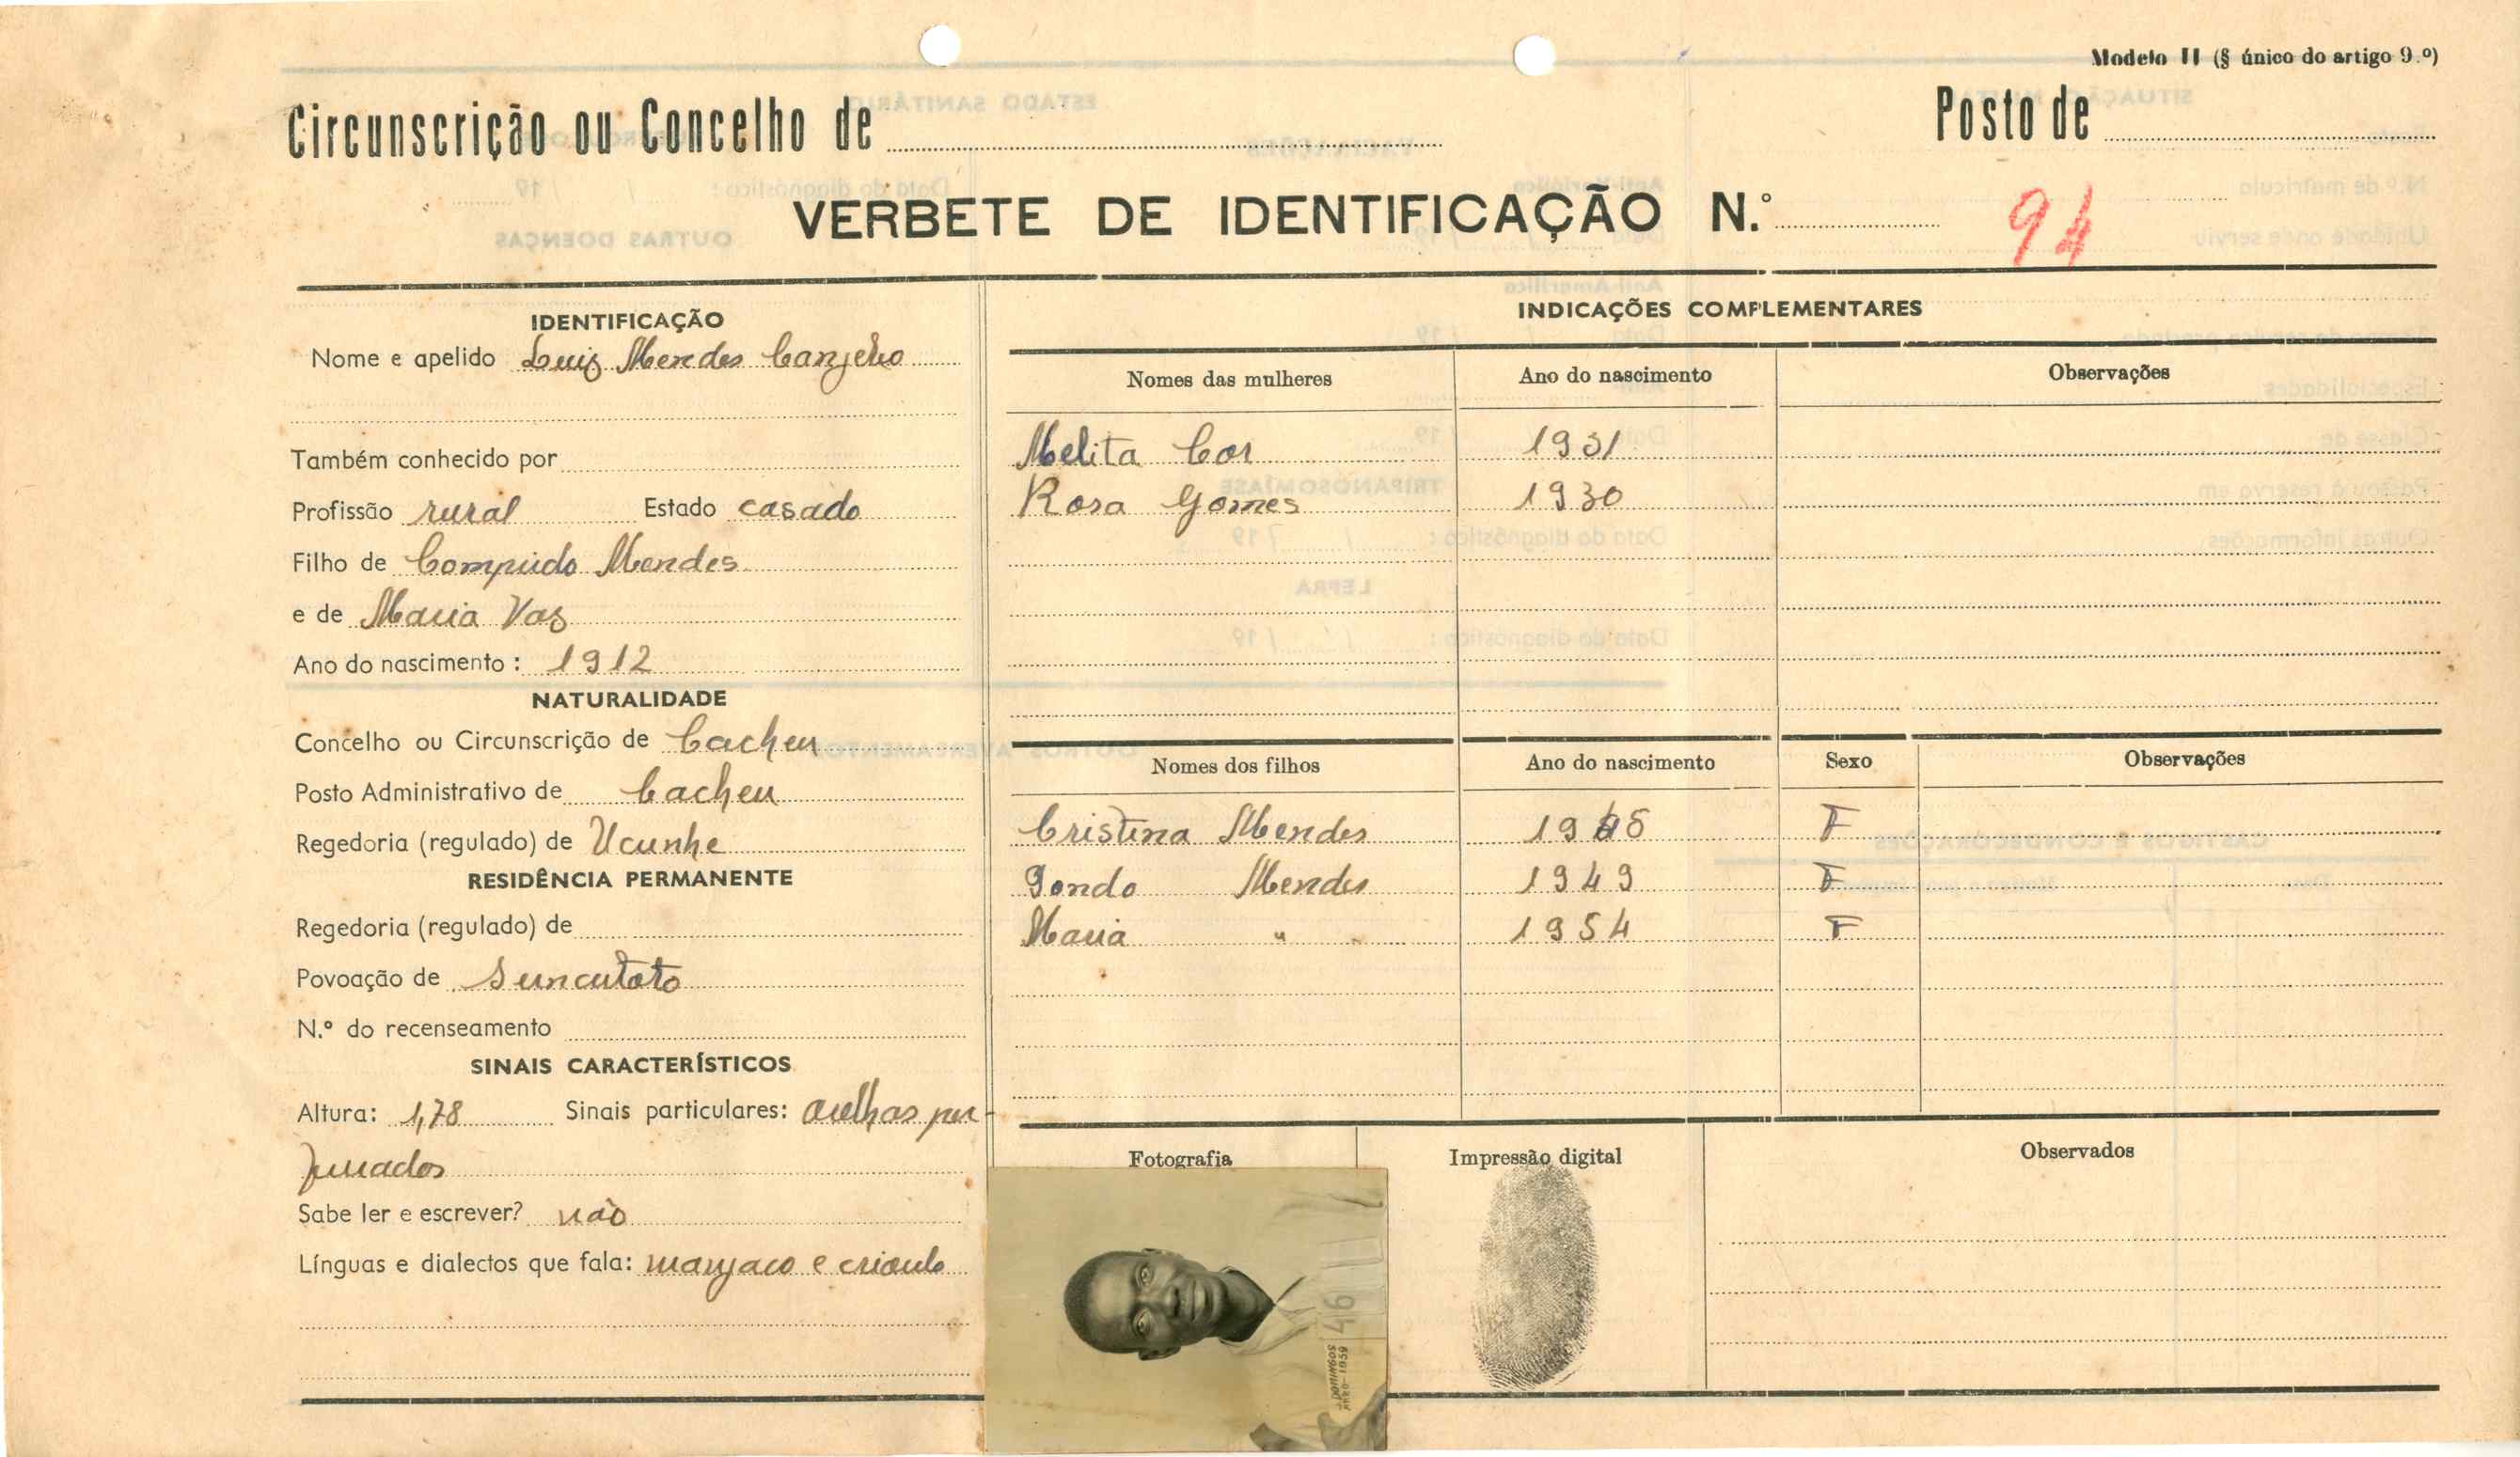 Modelo II (§ único do artigo 9.º)
Circunscrição ou Concelho de
Posto de
VERBETE DE IDENTIFICAÇÃO N.º 94
IDENTIFICAÇÃO
Nome e apelido Luiz Mendes
Também conhecido por
Profissão rural Estado casado
Filho de Mendes
e de Maria Vaz
Ano do nascimento: 1912
NATURALIDADE
Concelho ou Circunscrição de Cacheu
Posto Administrativo de Cacheu
Regedoria (regulado) de Ucunhe
RESIDÊNCIA PERMANENTE
Regedoria (regulado) de
Povoação de
N.º do recenseamento
SINAIS CARACTERÍSTICOS
Altura: 1,78 Sinais particulares: orelhas per
furados
Sabe ler e escrever? não
Línguas e dialectos que fala: manjaco e crioulo
INDICAÇÕES COMPLEMENTARES
Nomes das mulheres Ano do nascimento Observações
Melita Cor 1931
Rosa Gomes 1930
Nomes dos filhos Ano do nascimento Sexo Observações
Cristina Mendes F
Mendes 1949 F
Maria " " 1954 F
Fotografia
Impressão digital
Observados
46